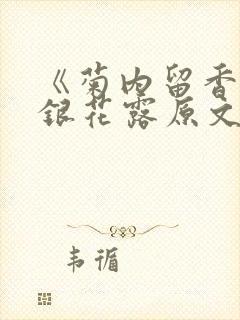 《菊内留香
银花露原文
韦循